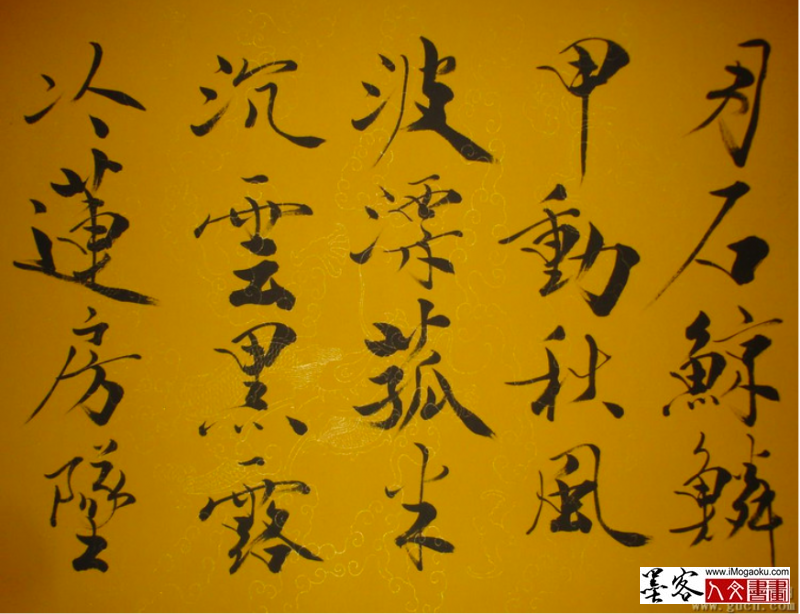 月石鯨鱗
甲動秋風
波漂菰米
沉雲黑露
冷蓮房墜
墨客
人文書畫
www.iMogaoku.com
www.gucn.com